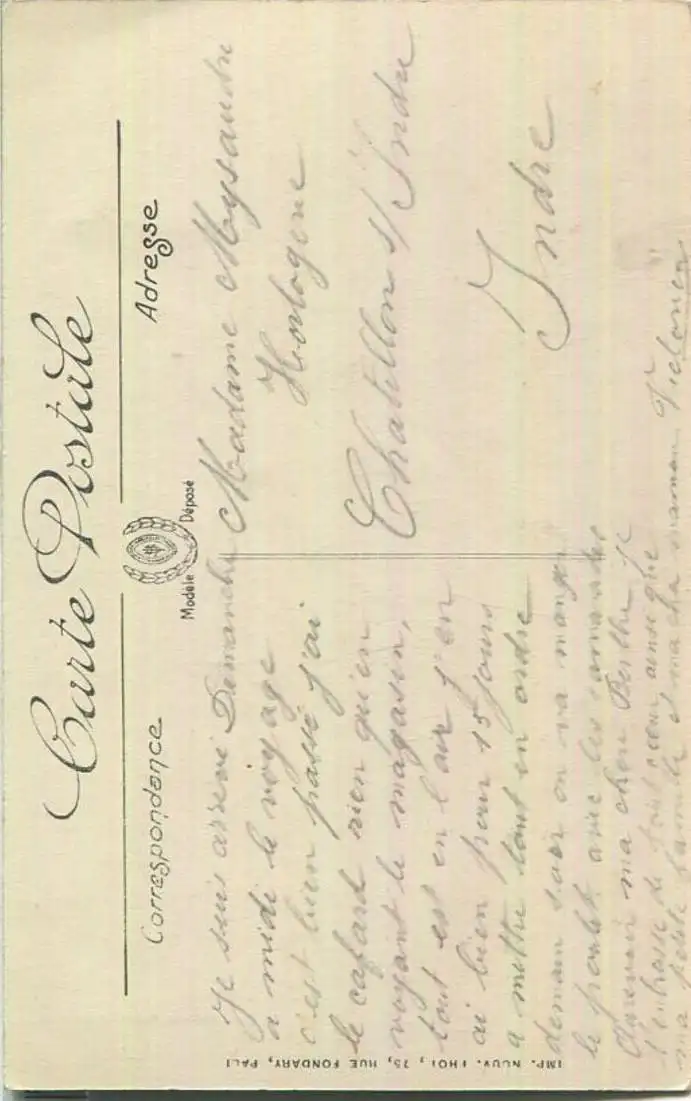 Carte Postale
Correspondance
Adresse
Modèle Déposé
Je suis arrivé Dimanche
a midi le voyage
c'est bien passé j'ai
le cafard rien qu'en
voyant le magasin,
tout est en l'air j'en
ai bien pour 15 jours
a mettre tout en ordre
demain soir on va manger
le poulet avec les camarades
Aurevoir ma chère Berthe je
t'embrasse de tout coeur ainsi que
ma petite famille et ma cha maman
Madame Mysandre
Horlogerie
Chatillon s/ Indre
Indre
IMP. NOUV. PHOT, 75, RUE FONDARY, PARI